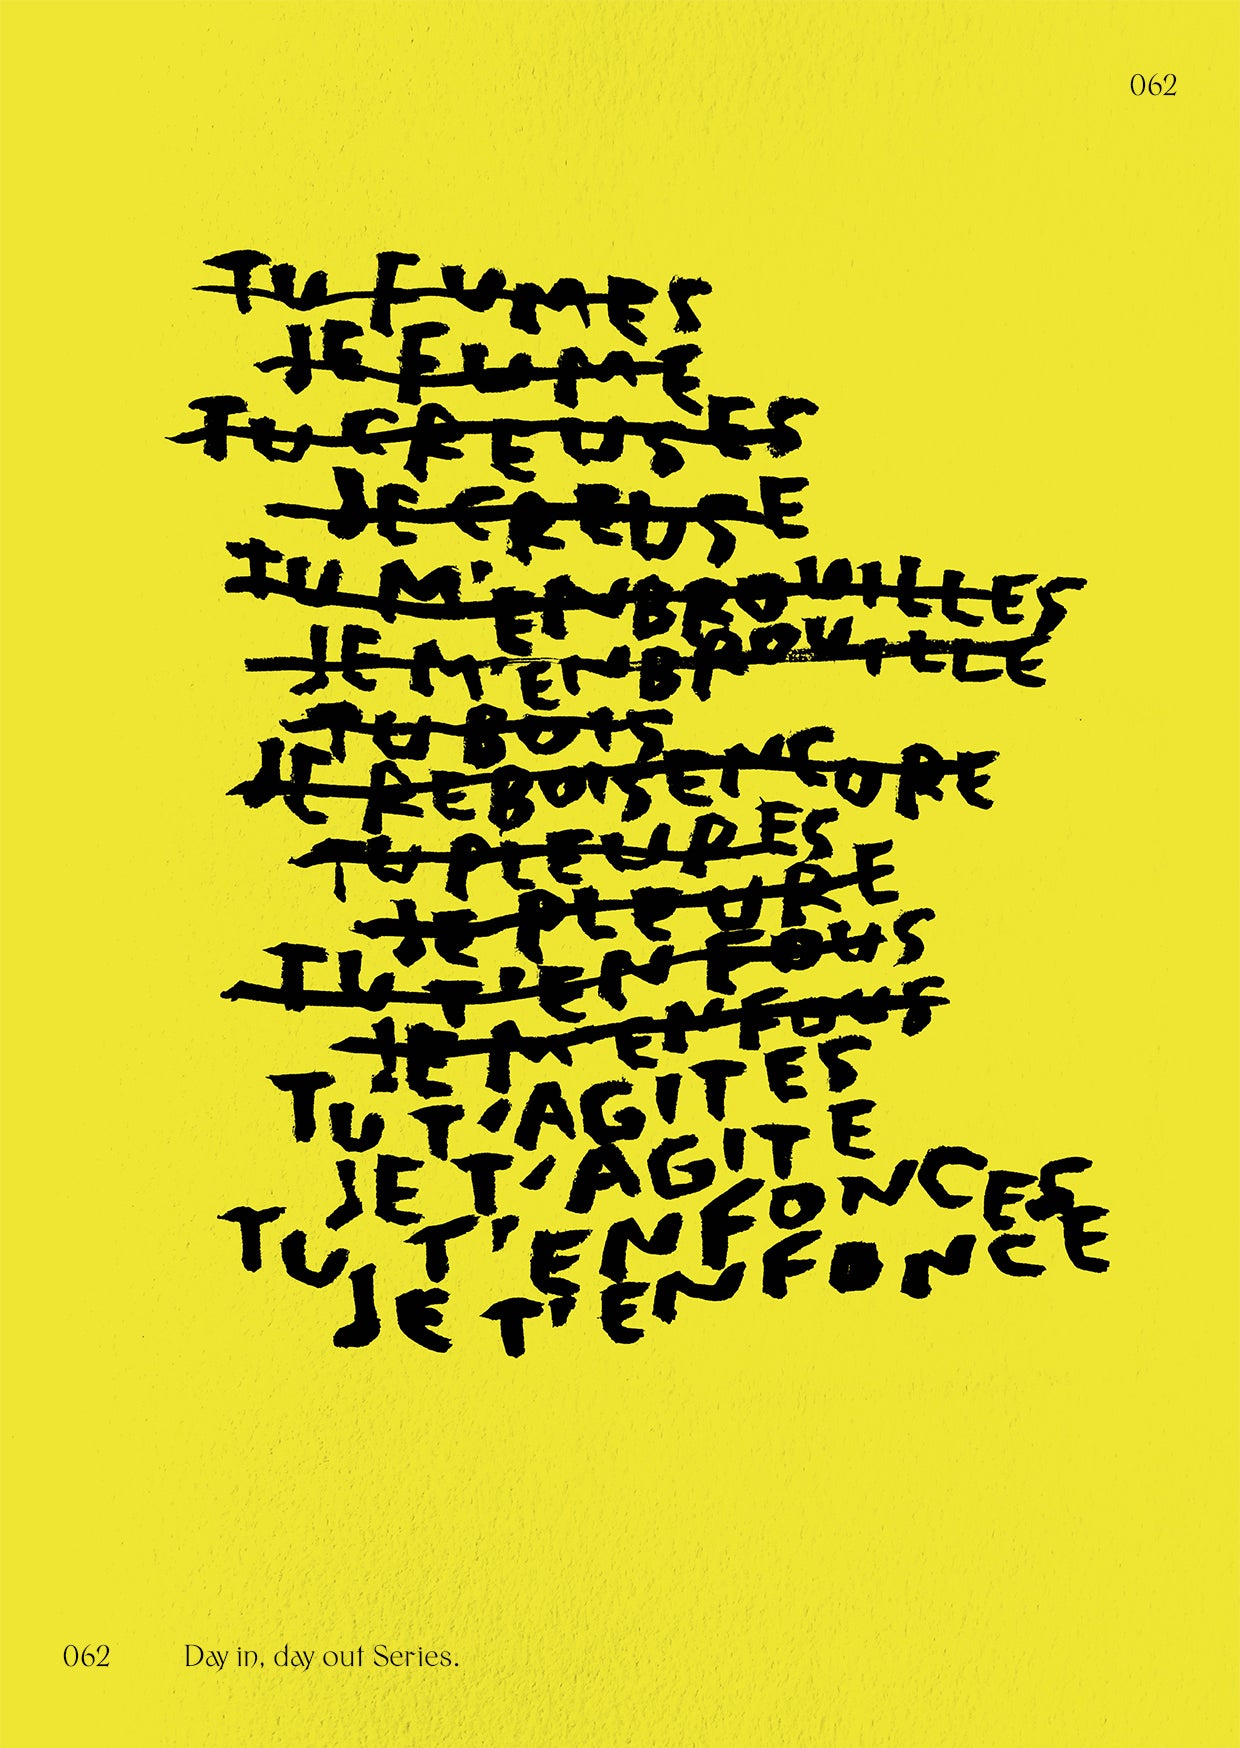 062
TU FUMES
JE FUME
TU CREUSES
JE CREUSE
TU M'ENBROUILLES
JE M'ENBROUILLE
TU BOIS
JE REBOIS ENCORE
TU PLEURES
JE PLEURE
TU T'EN FOUS
JE M'EN FOUS
TU T'AGITES
JE T'AGITE
TU T'ENFONCES
JE T'ENFONCE
062 Day in, day out Series.